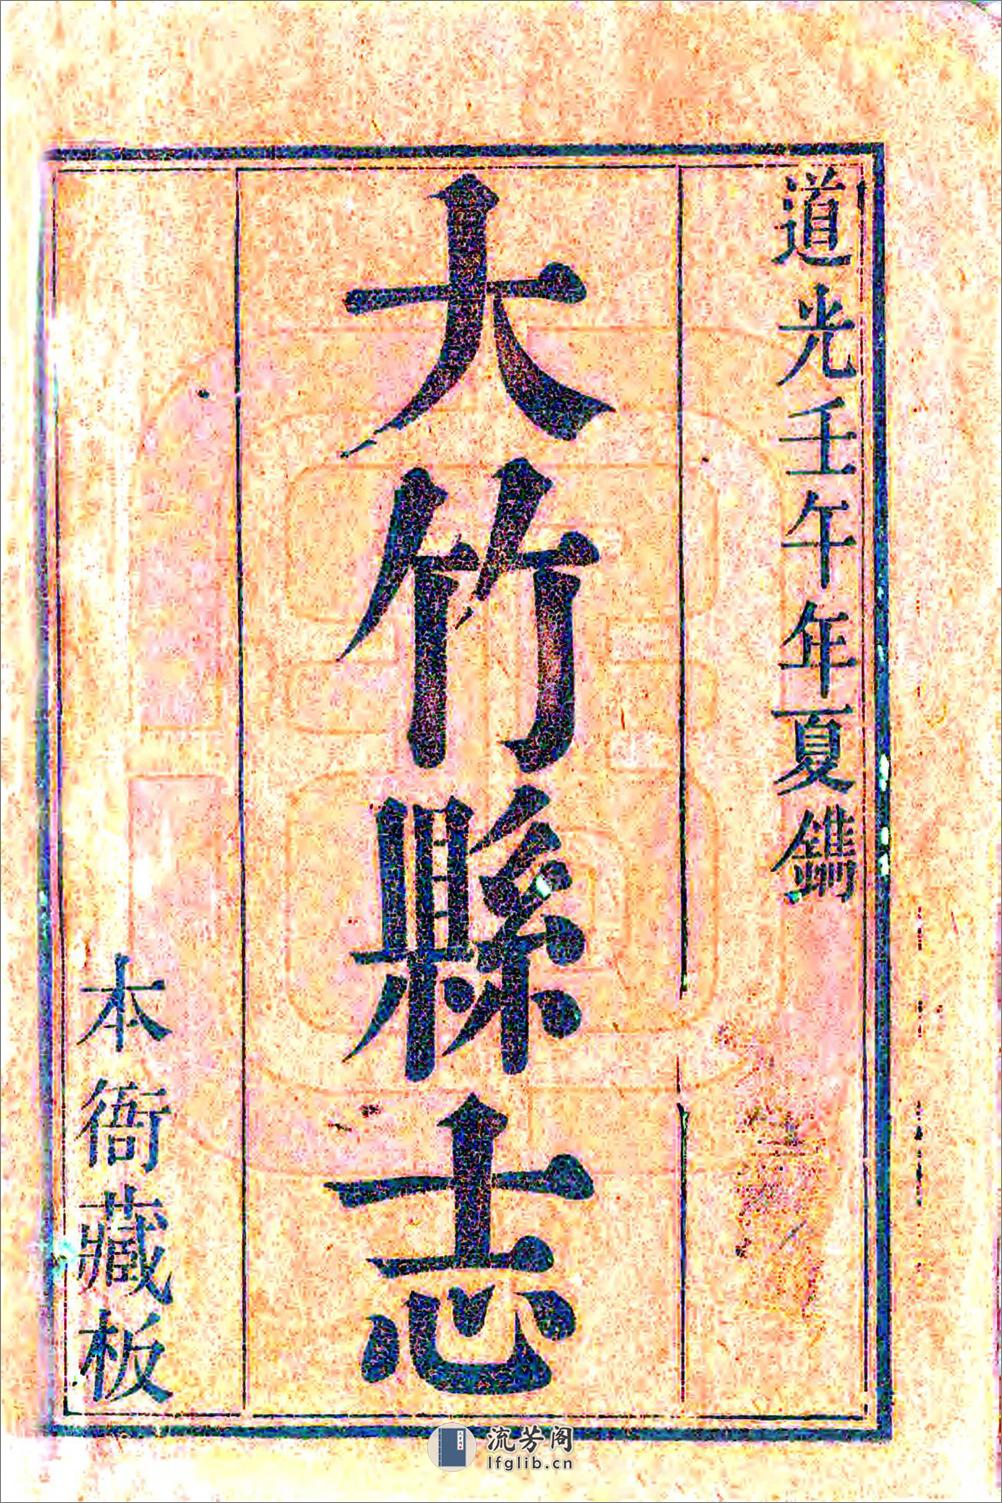 道光壬午年夏鐫
大竹縣志
本衙藏板
流芳阁
lfglib.cn